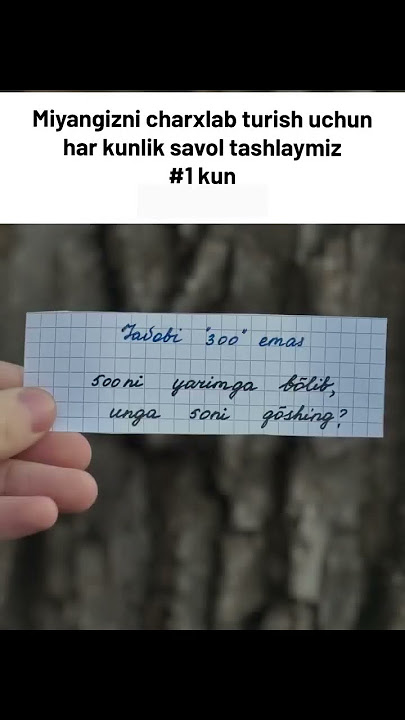 Miyangizni charxlab turish uchun
har kunlik savol tashlaymiz
#1 kun
Javobi "300" emas
500ni yarimga bōlib,
unga 50ni qōshing?